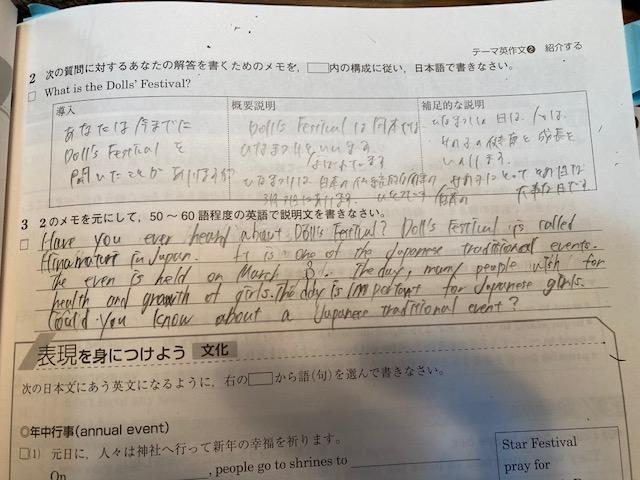 テーマ英作文❷ 紹介する
2 次の質問に対するあなたの解答を書くためのメモを,□内の構成に従い,日本語で書きなさい。
□ What is the Dolls' Festival?
導入
あなたは今までに
Doll's Festival を
聞いたことがありますか?
概要説明
Doll's Festival は日本では
ひなまつりといいます
よばれています
ひなまつりは日本の伝統的行事の
補足的な説明
健康と成長を
大事な日です
3 2のメモを元にして,50〜60語程度の英語で説明文を書きなさい。
□ Have you ever heard about Doll's Festival? Doll's Festival is called
Hinamaturi in Japan. It is one of the Japanese traditional events.
The even is held on March 3. The day, many people wish for
health and growth of girls. The day is important for Japanese girls.
Would you know about a Japanese traditional event?
表現を身につけよう 文化
次の日本文にあう英文になるように,右の□から語(句)を選んで書きなさい。
◎年中行事(annual event)
□(1) 元日に,人々は神社へ行って新年の幸福を祈ります。
On , people go to shrines to
Star Festival
pray for